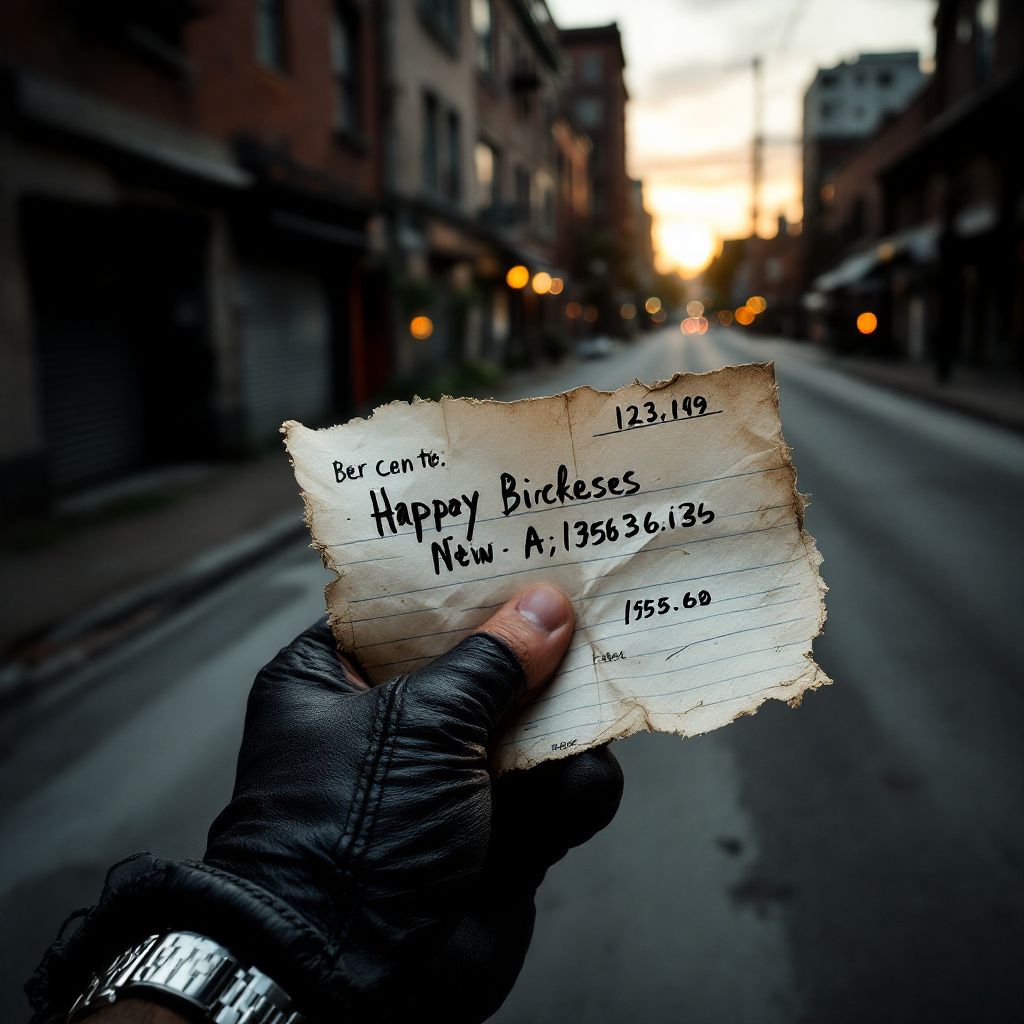 123,149
Ber Cen to:
Happay Birckeses
Netw - A;135636.135
1555.60